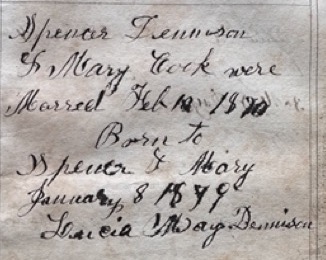 Spencer Dennison
& Mary Cock were
Marred Feb 18
Born to
Spencer & Mary
January 8 1879
Lucia May Dennison